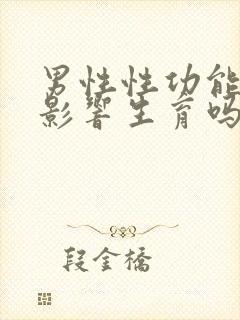 男性性功能
影響生育吗
段金橋